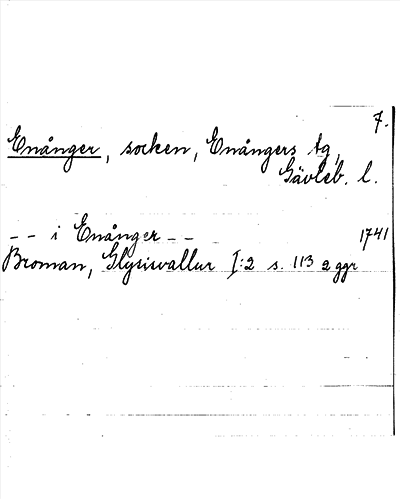 7.
Enånger, socken, Enångers tg,
Gävleb. l.
-- i Enånger -- 1741
Broman, Glysisvallur I:2 s. 113 2 ggr